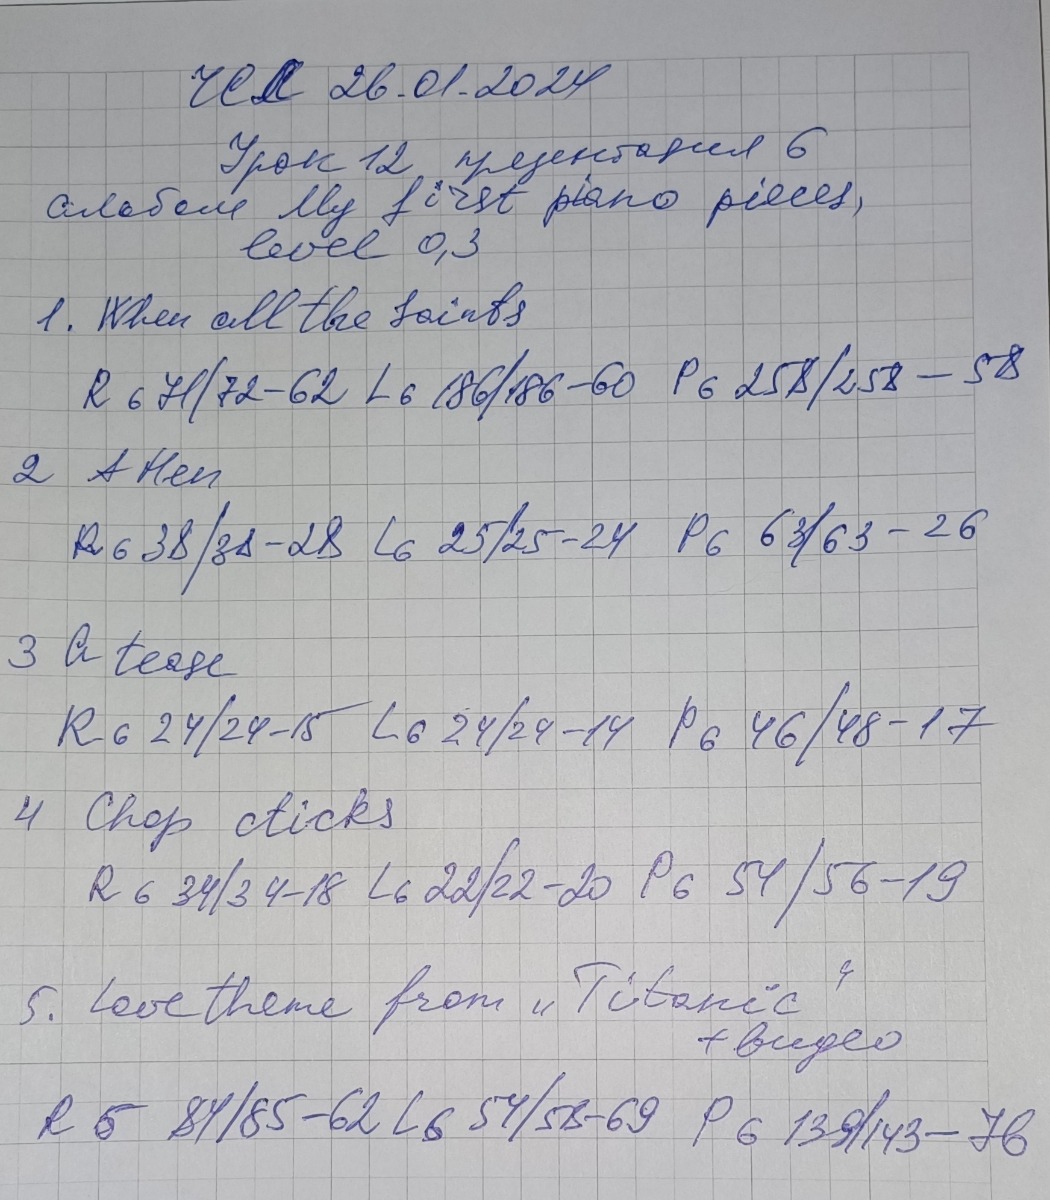 ЧСС 26.01.2024
Урок 12 презентация 6
альбом My first piano pieces,
level 0,3
1. When all the saints
R 6 71/72-62 L 6 186/186-60 P 6 258/258-58
2 A Hen
R 6 38/38-28 L 6 25/25-24 P 6 63/63-26
3 A tease
R 6 24/24-15 L 6 24/24-14 P 6 46/48-17
4 Chop sticks
R 6 34/34-18 L 6 22/22-20 P 6 54/56-19
5. Love theme from „Titanic"
+ видео
R 5 84/85-62 L 6 54/58-69 P 6 139/143-76